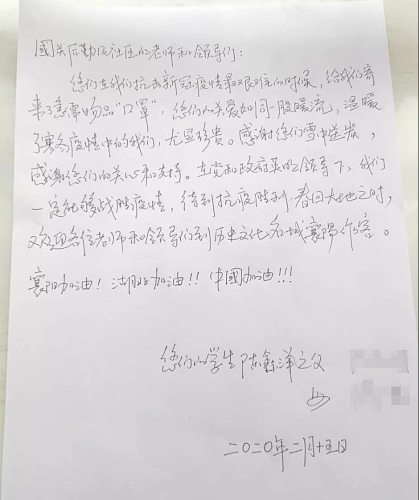 國关后勤及社区的老师和领导们:
您们在我们抗击新冠疫情最艰难的时候，给我们寄
来了急需物品"口罩"，您们的关爱如同一股暖流，温暖
了寒冬疫情中的我们，尤显珍贵。感谢您们雪中送炭，
感谢您们的关心和支持。在党和政府英的领导下，我们
一定能够战胜疫情，待到抗疫胜利、春回大地之时，
欢迎各位老师和领导们到历史文化名城襄陽作客。
襄阳加油！湖北加油!! 中國加油!!!
您们的学生陈鑫洋之父
二〇二〇年二月十五日